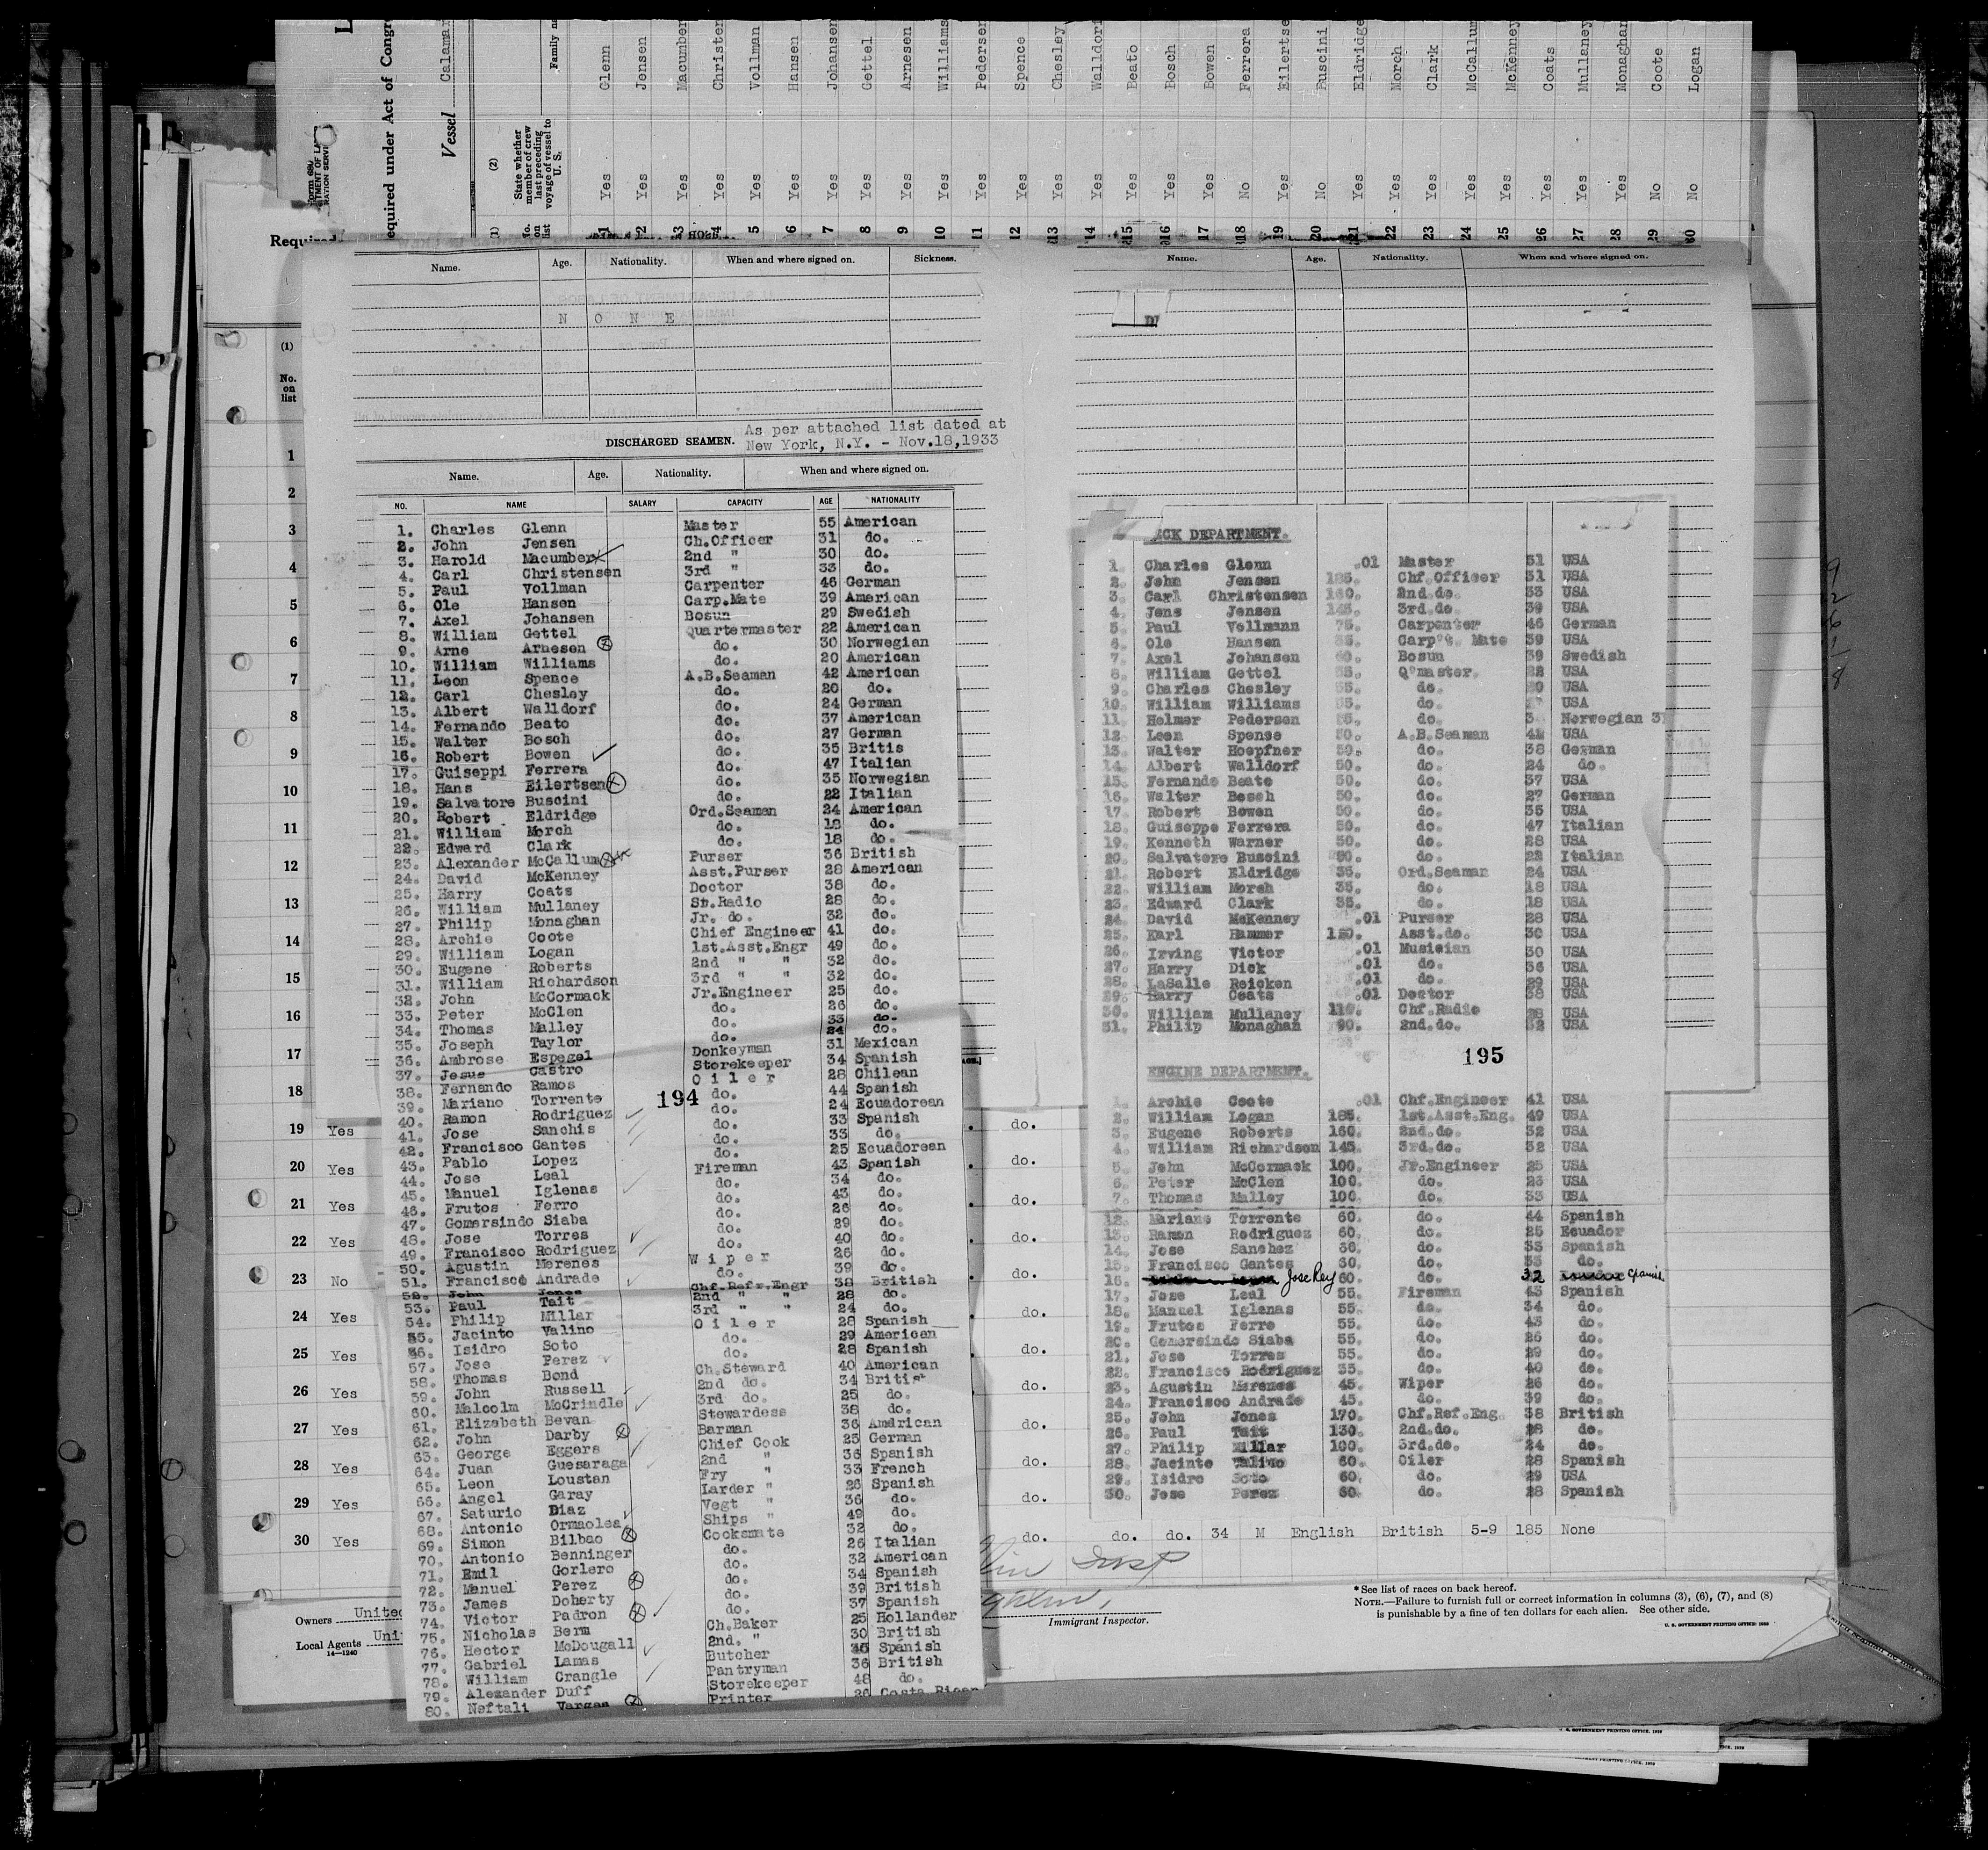 Required under Act of Congr
Vessel Calamar
(1) No. on list
(2) State whether member of crew last preceding voyage of vessel to U. S.
Family na
1 Yes Glenn
2 Yes Jensen
3 Yes Macumber
4 Yes Christen
5 Yes Vollman
6 Yes Hansen
7 Yes Johansen
8 Yes Gettel
9 Yes Arnesen
10 Yes Williams
11 Yes Pedersen
12 Yes Spence
13 Yes Chesley
14 Yes Walldorf
15 Yes Beato
16 Yes Bosch
17 Yes Bowen
18 No Ferrera
19 Yes Eilertse
20 No Buscini
21 Yes Eldridge
22 Yes Morch
23 Yes Clark
24 Yes McCallum
25 Yes McKenney
26 Yes Coats
27 Yes Mullaney
28 Yes Monaghan
29 No Coote
30 No Logan
Required
(1)
No. on list
1
2
3
4
5
6
7
8
9
10
11
12
13
14
15
16
17
18
19 Yes do.
20 Yes do.
21 Yes do.
22 Yes do.
23 No do.
24 Yes do.
25 Yes do.
26 Yes do.
27 Yes do.
28 Yes do.
29 Yes do.
30 Yes do. do. do. 34 M English British 5-9 185 None
Name. Age. Nationality. When and where signed on. Sickness.
N O N E
DISCHARGED SEAMEN. As per attached list dated at
New York, N.Y. - Nov.18,1933
Name. Age. Nationality. When and where signed on.
NO. NAME SALARY CAPACITY AGE NATIONALITY
1. Charles Glenn Master 55 American
2. John Jensen Ch.Officer 31 do.
3. Harold Macumber 2nd " 30 do.
4. Carl Christensen 3rd " 33 do.
5. Paul Vollman Carpenter 46 German
6. Ole Hansen Carp.Mate 39 American
7. Axel Johansen Bosun 29 Swedish
8. William Gettel Quartermaster 22 American
9. Arne Arnesen do. 30 Norwegian
10. William Williams do. 20 American
11. Leon Spence A.B.Seaman 42 American
12. Carl Chesley do. 20 do.
13. Albert Walldorf do. 24 German
14. Fernando Beato do. 37 American
15. Walter Bosch do. 27 German
16. Robert Bowen do. 35 Britis
17. Guiseppi Ferrera do. 47 Italian
18. Hans Eilertsen do. 35 Norwegian
19. Salvatore Buscini do. 22 Italian
20. Robert Eldridge Ord.Seaman 24 American
21. William Morch do. 18 do.
22. Edward Clark do. 18 do.
23. Alexander McCallum Purser 36 British
24. David McKenney Asst.Purser 28 American
25. Harry Coats Doctor 38 do.
26. William Mullaney Sr.Radio 28 do.
27. Philip Monaghan Jr. do. 32 do.
28. Archie Coote Chief Engineer 41 do.
29. William Logan 1st.Asst.Engr 49 do.
30. Eugene Roberts 2nd " " 32 do.
31. William Richardson 3rd " " 32 do.
32. John McCormack Jr.Engineer 25 do.
33. Peter McClen do. 26 do.
34. Thomas Malley do. 33 do.
35. Joseph Taylor do. 24 do.
36. Ambrose Espegel Donkeyman 31 Mexican
37. Jesus Castro Storekeeper 34 Spanish
38. Fernando Ramos O i l e r 28 Chilean
39. Mariano Torrente do. 44 Spanish
40. Ramon Rodriguez do. 24 Ecuadorean
41. Jose Sanchis do. 33 Spanish
42. Francisco Gantes do. 33 do.
43. Pablo Lopez do. 25 Ecuadorean
44. Jose Leal Fireman 43 Spanish
45. Manuel Iglenas do. 34 do.
46. Frutos Ferro do. 43 do.
47. Gomersindo Siaba do. 26 do.
48. Jose Torres do. 29 do.
49. Francisco Rodriguez do. 40 do.
50. Agustin Merenes W i p e r 26 do.
51. Francisco Andrade do. 39 do.
52. John Jones Chf.Refr.Engr 38 British
53. Paul Tait 2nd " " 28 do.
54. Philip Millar 3rd " " 24 do.
55. Jacinto Valino O i l e r 28 Spanish
56. Isidro Soto do. 29 American
57. Jose Perez do. 28 Spanish
58. Thomas Bond Ch.Steward 40 American
59. John Russell 2nd do. 34 British
60. Malcolm McCrindle 3rd do. 25 do.
61. Elizabeth Bevan Stewardess 38 do.
62. John Darby Barman 36 American
63. George Eggers Chief Cook 25 German
64. Juan Guesaraga 2nd " 36 Spanish
65. Leon Loustan Fry " 33 French
66. Angel Garay Larder " 26 Spanish
67. Saturio Diaz Vegt " 36 do.
68. Antonio Ormaolea Ships " 49 do.
69. Simon Bilbao Cooksmate 32 do.
70. Antonio Benninger do. 26 Italian
71. Emil Gorlero do. 32 American
72. Manuel Perez do. 34 Spanish
73. James Doherty do. 39 British
74. Victor Padron do. 37 Spanish
75. Nicholas Berm Ch.Baker 25 Hollander
76. Hector McDougall 2nd. " 30 British
77. Gabriel Lamas Butcher Spanish
78. William Crangle Pantryman 36 British
79. Alexander Duff Storekeeper 48 do.
80. Neftali Vargas Printer 26 Costa Rican
194
Name. Age. Nationality. When and where signed on.
ECK DEPARTMENT.
1. Charles Glenn .01 Master 51 USA
2. John Jensen 185. Chf.Officer 31 USA
3. Carl Christensen 160. 2nd.do. 33 USA
4. Jens Jensen 145. 3rd.do. 39 USA
5. Paul Vollmann 75. Carpenter 46 German
6. Ole Hansen Carp't. Mate 39 USA
7. Axel Johansen 60. Bosun 39 Swedish
8. William Gettel 55. Q'master. 22 USA
9. Charles Chesley 55. do. 20 USA
10. William Williams 55. do. USA
11. Helmer Pedersen 55. do. Norwegian
12. Leon Spense 50. A.B.Seaman 42 USA
13. Walter Hoepfner 50. do. 38 German
14. Albert Walldorf 50. do. 24 do.
15. Fernando Beato 50. do. 37 USA
16. Walter Bosch 50. do. 27 German
17. Robert Bowen 50. do. 35 USA
18. Guiseppe Ferrera 50. do. 47 Italian
19. Kenneth Warner 50. do. 28 USA
20. Salvatore Buscini 50. do. 22 Italian
21. Robert Eldridge 35. Ord.Seaman 24 USA
22. William Morch 35. do. 18 USA
23. Edward Clark 35. do. 18 USA
24. David McKenney .01 Purser 28 USA
25. Karl Hammer Asst.do. 30 USA
26. Irving Victor .01 Musician 30 USA
27. Harry Dick .01 do. 36 USA
28. LaSalle Reicken .01 do. 29 USA
29. Harry Coats .01 Doctor 38 USA
30. William Mullaney 110. Chf.Radio 28 USA
31. Philip Monaghan 90. 2nd.do. 32 USA
195
ENGINE DEPARTMENT.
1. Archie Coote .01 Chf.Engineer 41 USA
2. William Logan 185. 1st.Asst.Eng. 49 USA
3. Eugene Roberts 160. 2nd.do. 32 USA
4. William Richardson 145. 3rd.do. 32 USA
5. John McCormack 100. Jr.Engineer 25 USA
6. Peter McClen 100. do. 26 USA
7. Thomas Malley 100. do. 33 USA
12. Mariano Torrente 60. do. 44 Spanish
13. Ramon Rodriguez 60. do. 25 Ecuador
14. Jose Sanchez 30. do. 33 Spanish
15. Francisco Gantes 30. do. 33 do.
16. Jose Rey 60. do. 32 Spanish
17. Jose Leal 55. Fireman 43 Spanish
18. Manuel Iglenas 55. do. 34 do.
19. Frutos Ferro 55. do. 43 do.
20. Gomersindo Siaba 55. do. 26 do.
21. Jose Torres 55. do. 29 do.
22. Francisco Rodriguez 55. do. 40 do.
23. Agustin Merenes 45. Wiper 26 do.
24. Francisco Andrade 45. do. 39 do.
25. John Jones 170. Chf.Ref.Eng. 38 British
26. Paul Tait 130. 2nd.do. 28 do.
27. Philip Millar 100. 3rd.do. 24 do.
28. Jacinto Valino 60. Oiler 28 Spanish
29. Isidro Soto 60. do. 29 USA
30. Jose Perez 60. do. 28 Spanish
Owners United
Local Agents Uni
14—1240
Immigrant Inspector.
*See list of races on back hereof.
NOTE.—Failure to furnish full or correct information in columns (3), (6), (7), and (8)
is punishable by a fine of ten dollars for each alien. See other side.
U. S. GOVERNMENT PRINTING OFFICE: